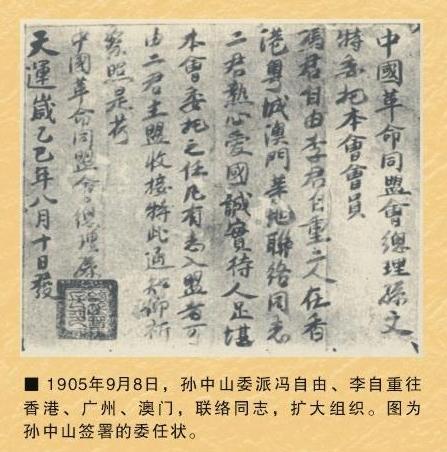 中國革命同盟會總理孫文
特委托本會會員
馮君自由李君自重二人在香
港粵城澳門等地聯絡同志
二君熱心愛國誠實待人足堪
本會委托之任凡有志入盟者可
由二君主盟收接特此通知仰祈
察照是荷
中國革命同盟會總理孫
天運歲乙巳年八月十日發
■ 1905年9月8日，孙中山委派冯自由、李自重往
香港、广州、澳门，联络同志，扩大组织。图为
孙中山签署的委任状。